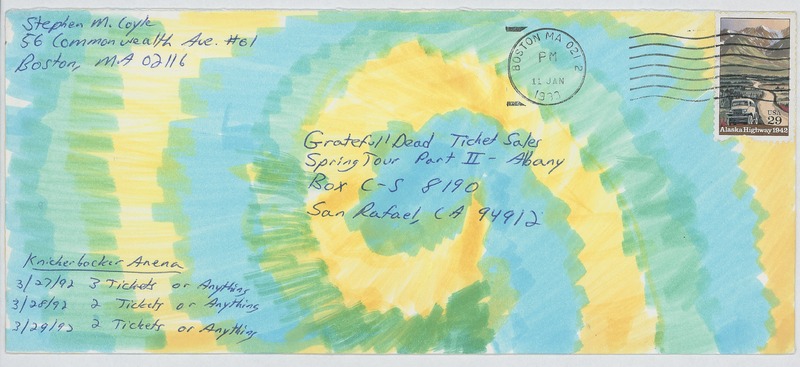 Stephen M. Coyle
56 Commonwealth Ave. #61
Boston, MA 02116
BOSTON MA 021 2
PM
11 JAN
1993
USA
29
Alaska Highway 1942
Gratefull Dead Ticket Sales
Spring Tour Part II - Abany
Box C-S 8190
San Rafael, CA 94912
Knickerbocker Arena
3/27/92 3 Tickets or Anything
3/28/92 2 Tickets or Anything
3/29/92 2 Tickets or Anything